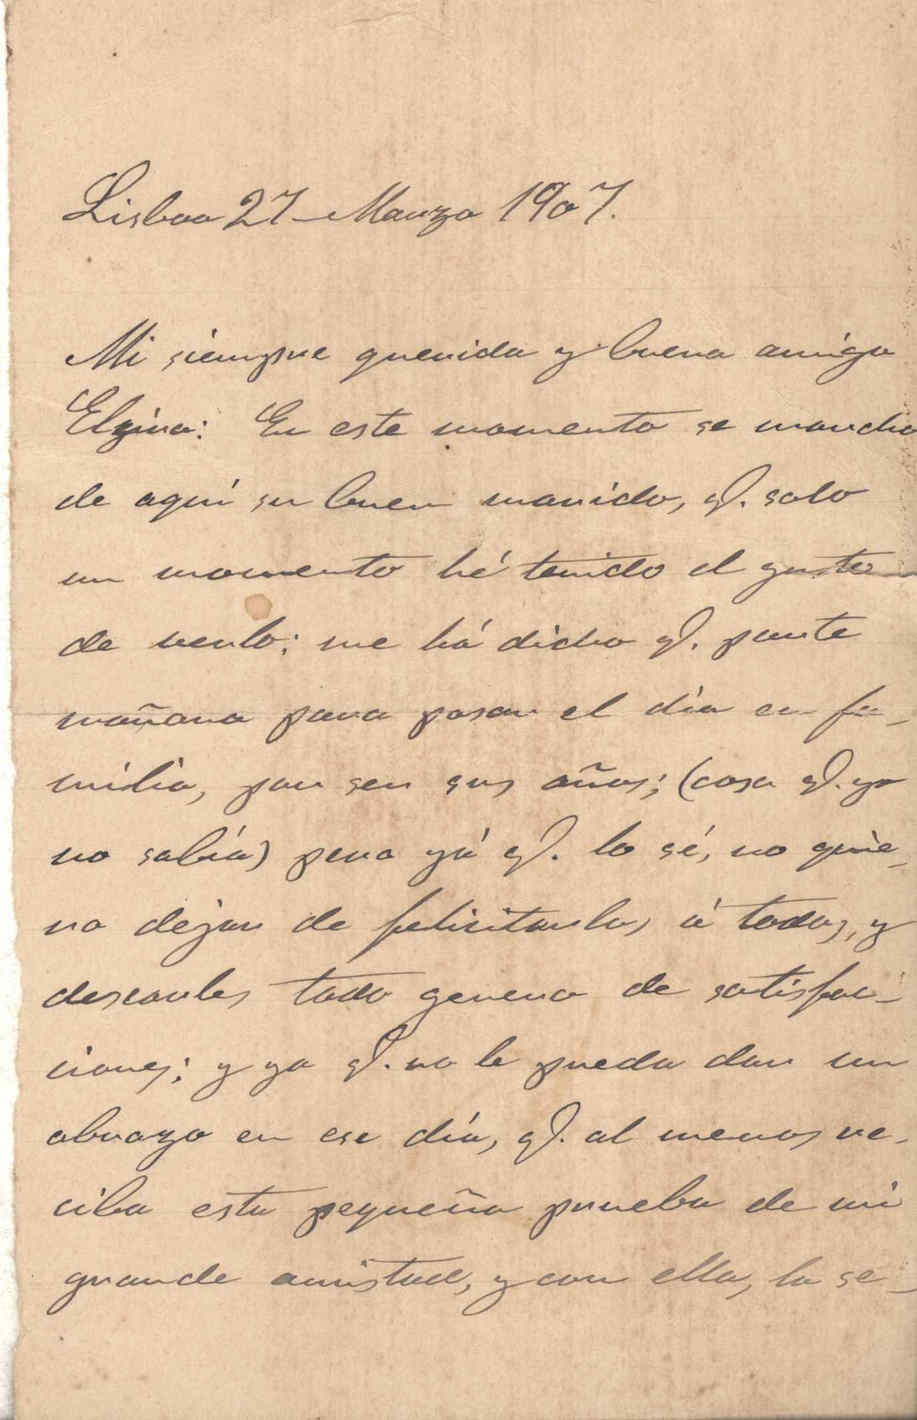 Lisboa 27 - Marzo 1907.
Mi siempre querida y buena amiga
Elzira: En este momento se marcha
de aquí su buen marido, q. solo
un momento hé tenido el gusto
de verlo: me há dicho q. parte
mañana para pasar el día en fa-
milia, por ser sus años; (cosa q. yo
no sabía) pero yá q. lo sé, no quie-
ro dejar de felicitarlos á todos, y
desearles todo genero de satisfac-
iones; y ya q. no le pueda dar un
abrazo en ese día, q. al menos re-
ciba esta pequeña prueba de mi
grande amistad, y con ella, la se-